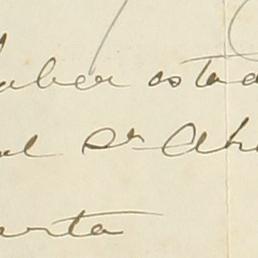 haber estad
al Sr Ah
urta